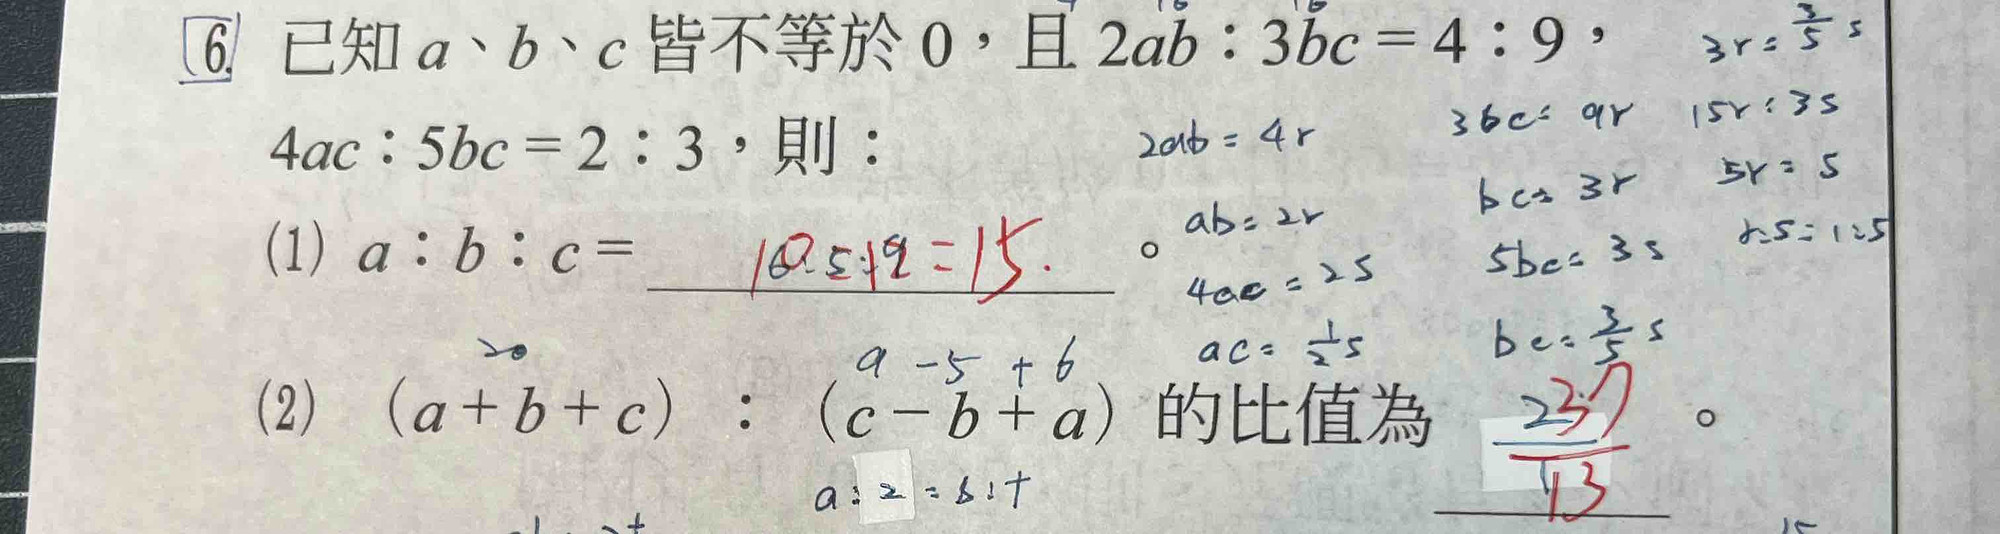 6. 已知 a、b、c 皆不等於 0，且 2ab：3bc = 4：9，
4ac：5bc = 2：3，則：
(1) a：b：c = 10:12=15.。
(2) (a+b+c)：(c-b+a) 的比值為 37/13。
20
9 -5 + 6
2ab = 4r
ab = 2r
4ac = 2s
ac = 1/2 s
3bc = 9r
bc = 3r
5bc = 3s
bc = 3/5 s
3r = 3/5 s
15r = 3s
5r = s
r:s = 1:5